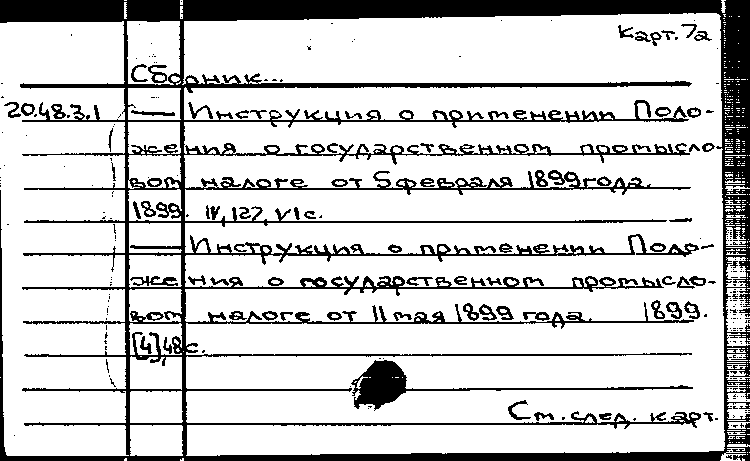 Карт. 7а
Сборник...
20.48.3.1 — Инструкция о применении Поло-
жения о государственном промысло-
вом налоге от 5 февраля 1899 года.
1899. IV, 127, VI с.
— Инструкция о применении Поло-
жения о государственном промысло-
вом налоге от 11 мая 1899 года. 1899.
[4], 48 с.
См. след. карт.